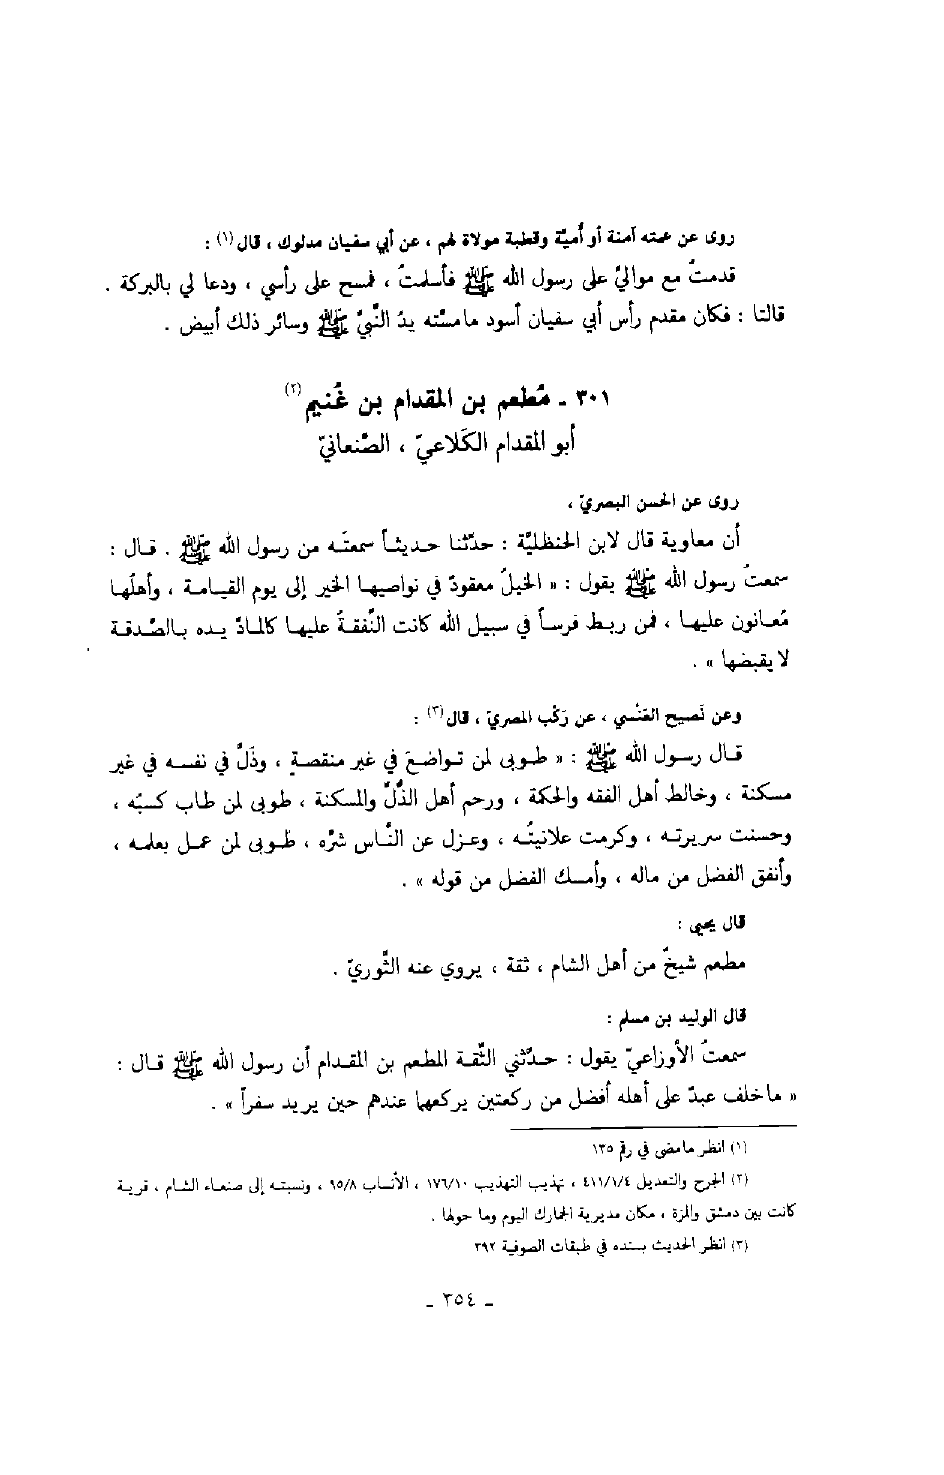 روى عن عمته آمنة أو أُميّة وقطبة مولاة لهم ، عن أبي سفيان مدلوك ، قال(١) :
قدمتُ مع مواليّ على رسول الله ﷺ فأسلمتُ ، فمسح على رأسي ، ودعا لي بالبركة .
قالتا : فكان مقدم رأس أبي سفيان أسود مامسّته يدُ النَّبيِّ ﷺ وسائر ذلك أبيض .
٣٠١ ـ مُطعم بن المقدام بن غُنيم(٢)
أبو المقدام الكَلاعيّ ، الصَّنعانيّ
روى عن الحسن البصريّ ،
أن معاوية قال لابن الحنظليَّة : حدّثنا حديثاً سمعتَـه من رسول الله ﷺ . قـال :
سمعتُ رسول الله ﷺ يقول : « الخيلُ معقودٌ في نواصيهـا الخير إلى يوم القيـامـة ، وأهلُهـا
مُعـانون عليهـا ، فمن ربـط فرسـاً في سبيل الله كانت النَّفقـةُ عليهـا كالمـادِّ يـده بـالصَّـدقـة
لا يقبضها » .
وعن نَصيح العَنْسي ، عن رَكْب المصريّ ، قال(٣) :
قـال رسـول الله ﷺ : « طـوبى لمن تـواضـعَ في غير منقصـةٍ ، وذَلَّ في نفسـه في غير
مسكنة ، وخالط أهل الفقه والحكمة ، ورحم أهل الذُّلِّ والمسكنة ، طوبى لمن طاب كسبُه ،
وحسنت سريرتـه ، وكرمت علانيتُـه ، وعـزل عن النَّاس شرَّه ، طـوبى لمن عمـل بعلمـه ،
وأنفق الفضل من ماله ، وأمسك الفضل من قوله » .
قال يحيى :
مطعم شيخٌ من أهل الشام ، ثقة ، يروي عنه الثَّوريّ .
قال الوليد بن مسلم :
سمعتُ الأوزاعيّ يقول : حـدَّثني الثِّقـة المطعم بن المقـدام أن رسول الله ﷺ قـال :
« ماخلف عبدٌ على أهله أفضل من ركعتين يركعهما عندهم حين يريد سفراً » .
(١) انظر مامضى في رقم ١٣٥
(٢) الجرح والتعديل ٤١١/١/٤ ، تهذيب التهذيب ١٧٦/١٠ ، الأنساب ٩٥/٨ ، ونسبتـه إلى صنعاء الشام ، قريـة
كانت بين دمشق والمزة ، مكان مديرية الجمارك اليوم وما حولها .
(٣) انظر الحديث بسنده في طبقات الصوفية ٣٩٢
ـ ٣٥٤ ـ